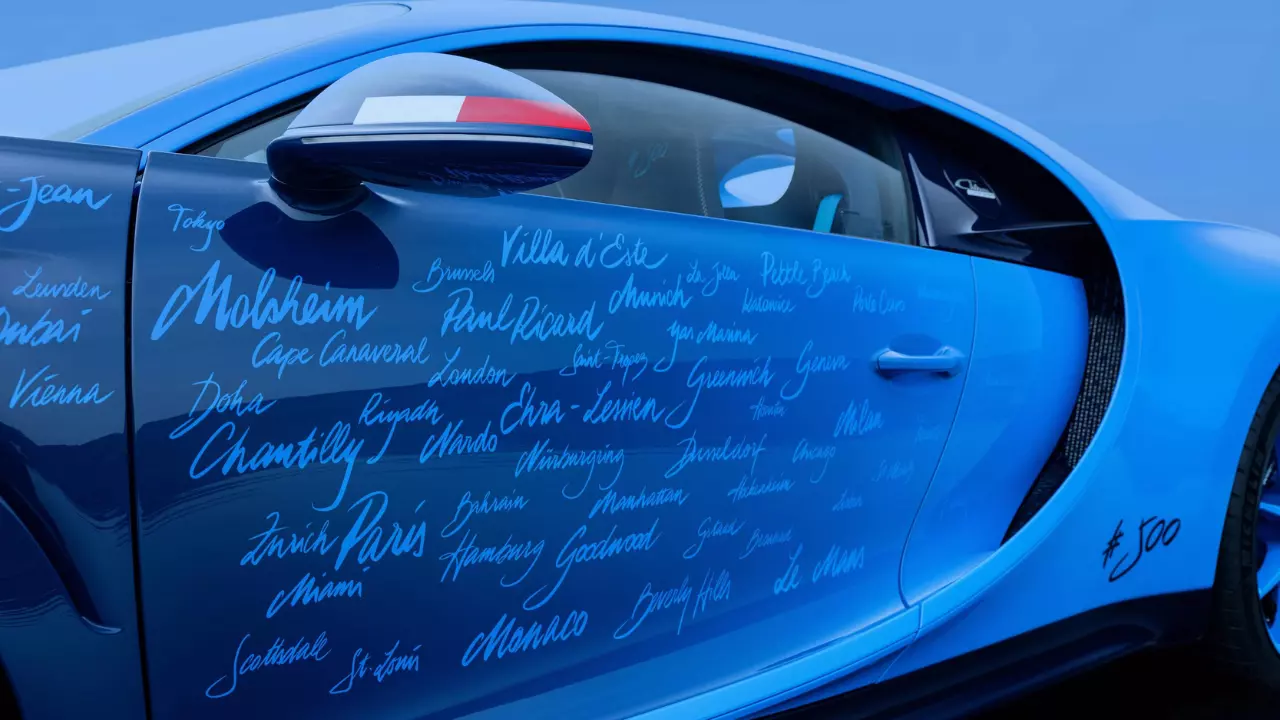 -Jean
Leuvden
Dubai
Vienna
Tokyo
Molsheim
Cape Canaveral
Doha
Riyadh
Chantilly
Zurich
Paris
Miami
Scottsdale
St. Louis
Brussels
Villa d'Este
Paul Ricard
Munich
Le Jean
Pebble Beach
Katowice
Porto Cervo
Yas Marina
London
Saint-Tropez
Greenwich
Geneva
Ehra-Lessien
Nardo
Nürburgring
Dusseldorf
Milan
Chicago
Bahrain
Manhattan
Hamburg
Goodwood
Monaco
Beverly Hills
Le Mans
#500